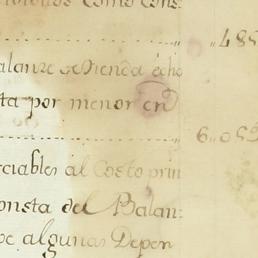 como cons:
„ 488
alanze hienda echo
ta por menor en
6„052
ciables al Costo prin
onsta del Balan:
de algunas Depen